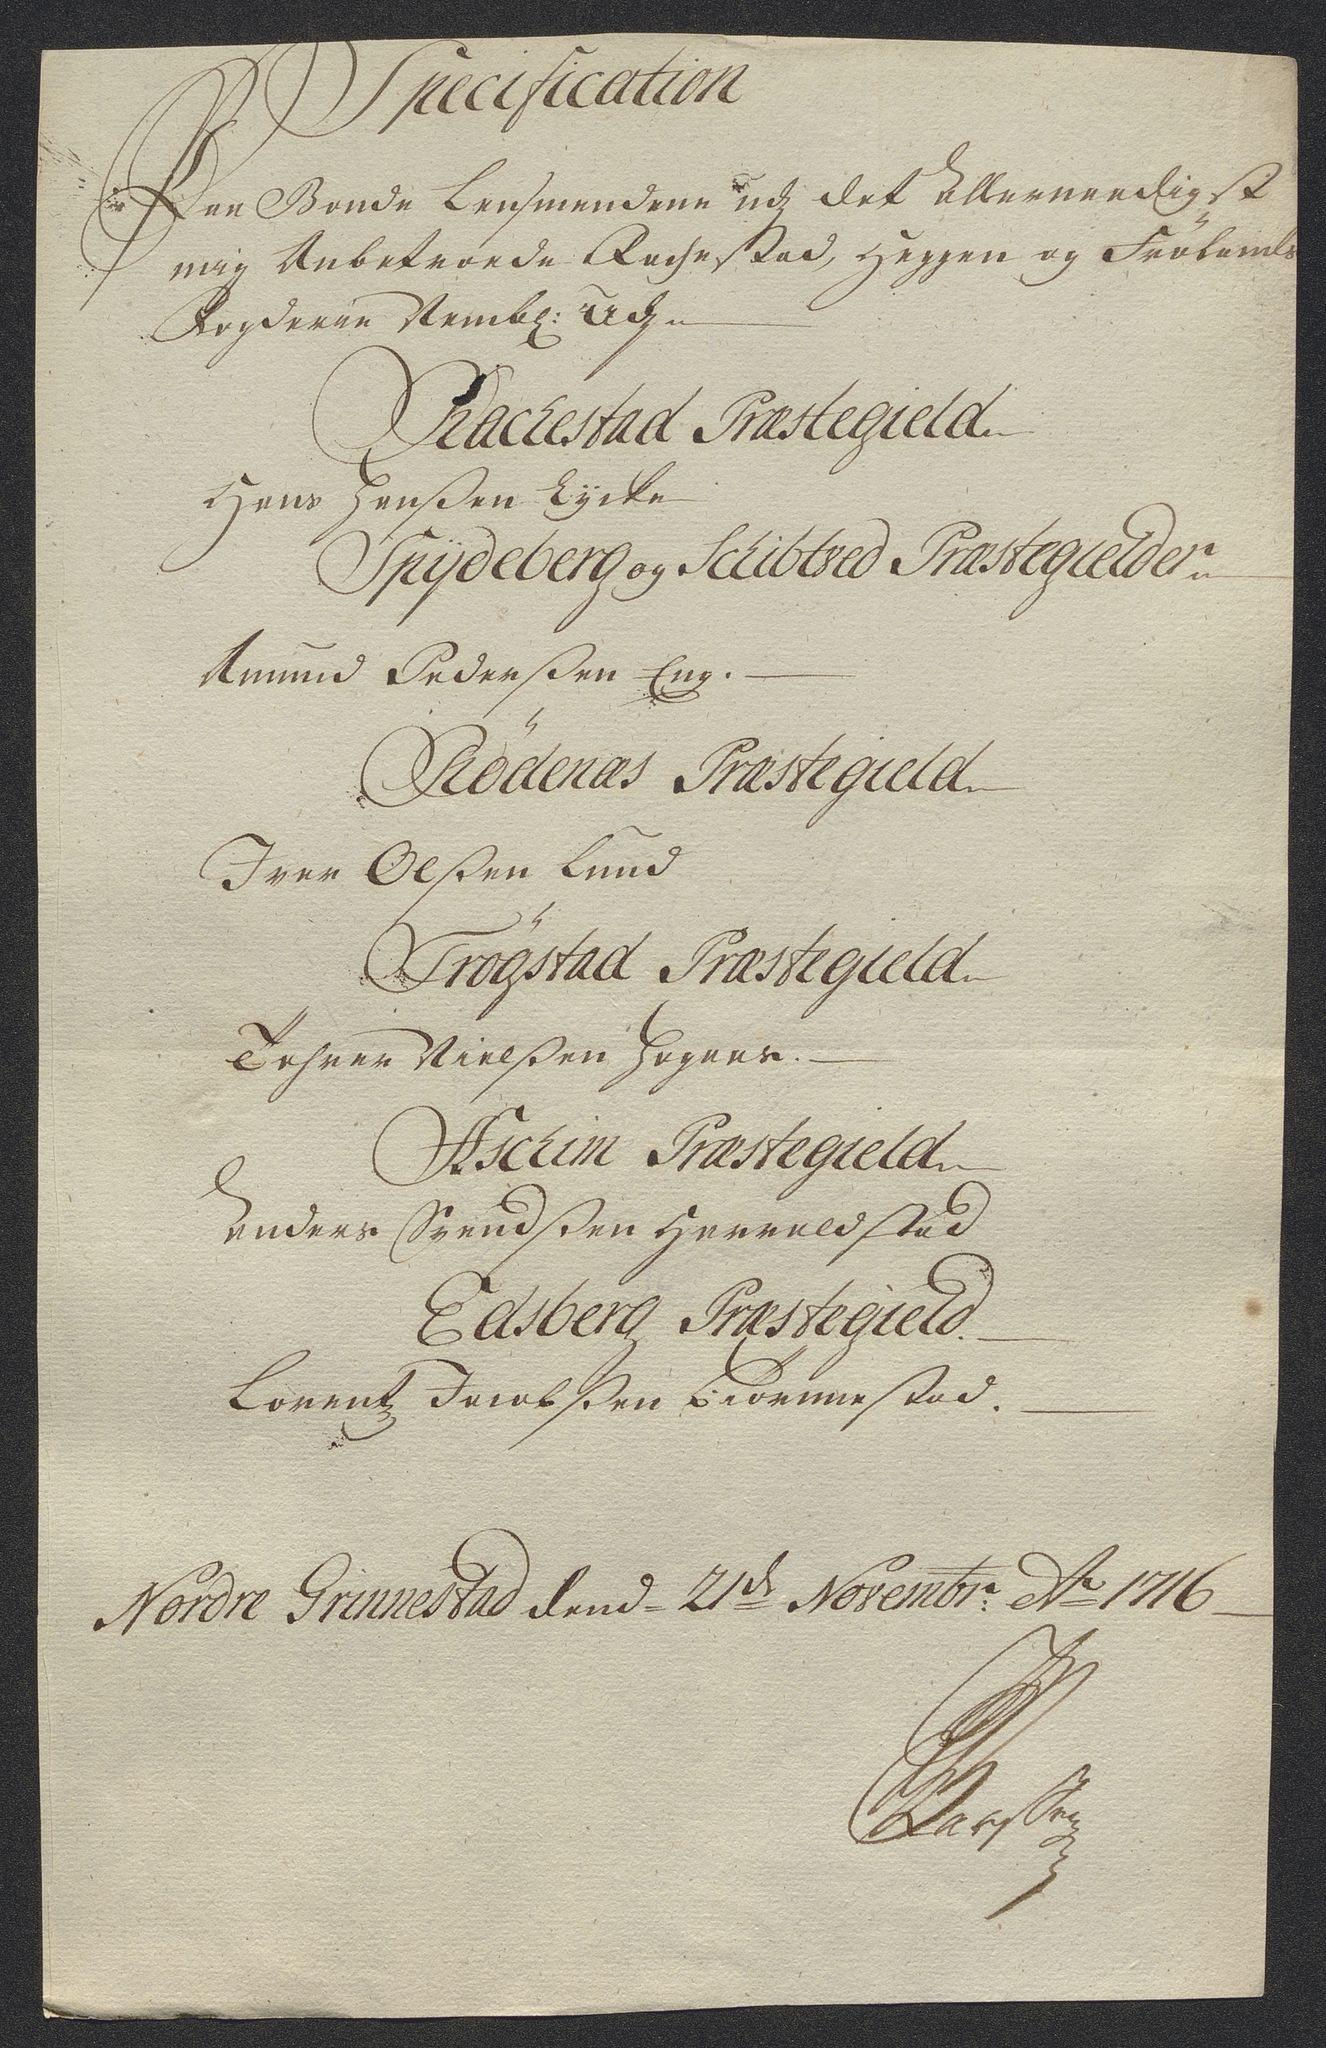 Specification
Paa Bonde Lensmendene udj det Allernaadigst
mig Anbetroede Rachestad, Heggen og Frölands
Fogderie Nembl: Udj
Rachestad Præstegield
Hans Hanßen Lycke
Spÿdeberg og Schibtved Præstegielder
Amund Pederßen Eng.
Rödenæs Præstegield
Iver Olßen Lund
Trögstad Præstegield
Nielßen
Aschim Præstegield
Anders Svendßen Harraldstad
Edsberg Præstegield.
Lorentz Jacobßen Biörnnestad.
Nordre Grinnestad dend 21de Novembr: Ao 1716
Larssen